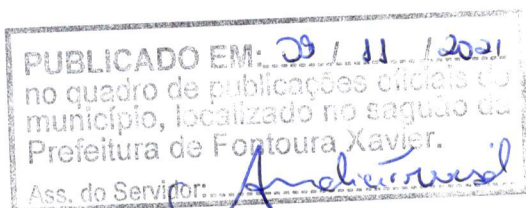 PUBLICADO EM: 09 / 11 / 2021
no quadro de publicações oficiais do
município, localizado no saguão da
Prefeitura de Fontoura Xavier.
Ass. do Servidor: